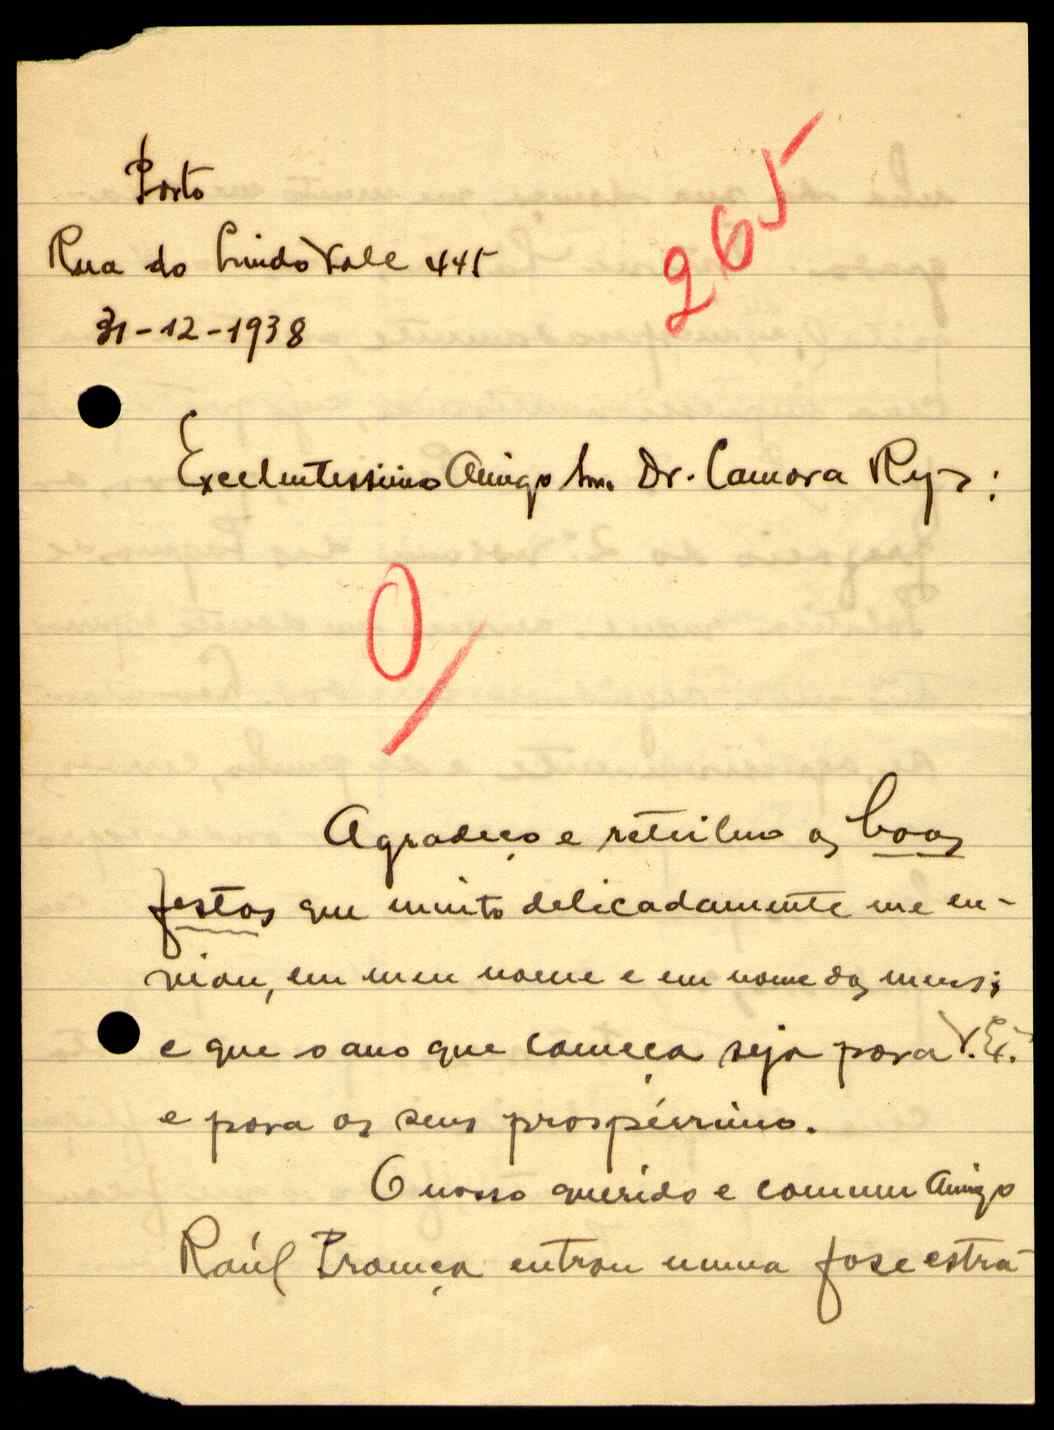 Porto
Rua do Lindo Vale 445
31-12-1938
265
Excelentessimo Amigo Snr. Dr. Camara Reys:
0/
Agradeço e retribuo as boas
festas que muito delicadamente me en-
viou, em meu nome e em nome dos meus;
e que o ano que começa seja para V. Ex.ª
e para os seus prospérrimo.
O nosso querido e commum Amigo
Raúl Proença entrou numa fase estra-